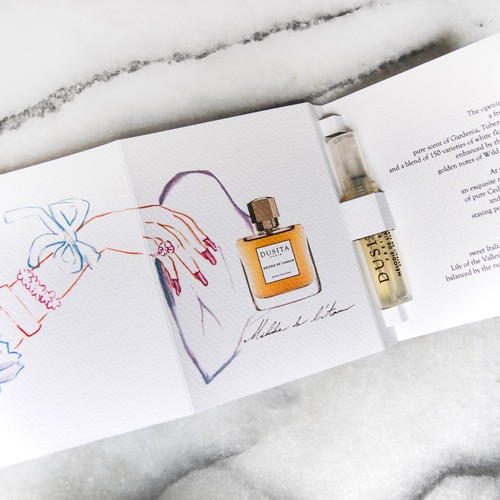 DUSITA
PARIS
MÉLODIE DE L'AMOUR
Mélodie de l'Amour
DUSITA
The opening
a fre
pure scent of Gardenia, Tubero
and a blend of 150 varieties of white flo
enhanced by the
golden notes of Wild
At
an exquisite
of pure Ced
and
staying po
sweet Itali
Lily of the Valley
balanced by the ric